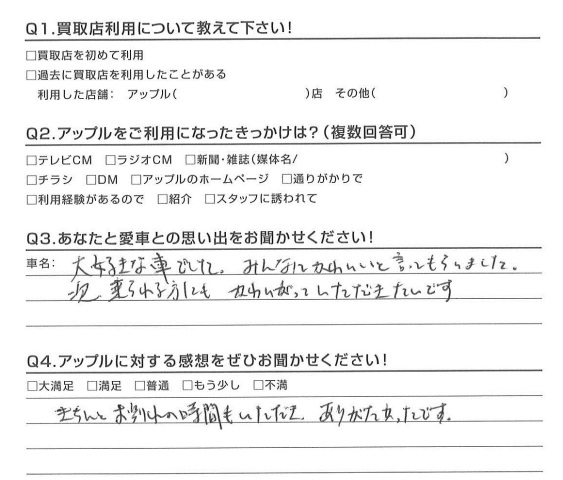 Q1.買取店利用について教えて下さい!
□買取店を初めて利用
□過去に買取店を利用したことがある
利用した店舗: アップル( )店 その他( )
Q2.アップルをご利用になったきっかけは?(複数回答可)
□テレビCM □ラジオCM □新聞・雑誌(媒体名/ )
□チラシ □DM □アップルのホームページ □通りがかりで
□利用経験があるので □紹介 □スタッフに誘われて
Q3.あなたと愛車との思い出をお聞かせください!
車名: 大好きな車でした。みんなにかわいいと言ってもらいました。
次、乗られる方にも かわいがっていただきたいです
Q4.アップルに対する感想をぜひお聞かせください!
□大満足 □満足 □普通 □もう少し □不満
きちんとお別れの時間もいただき、ありがたかったです。